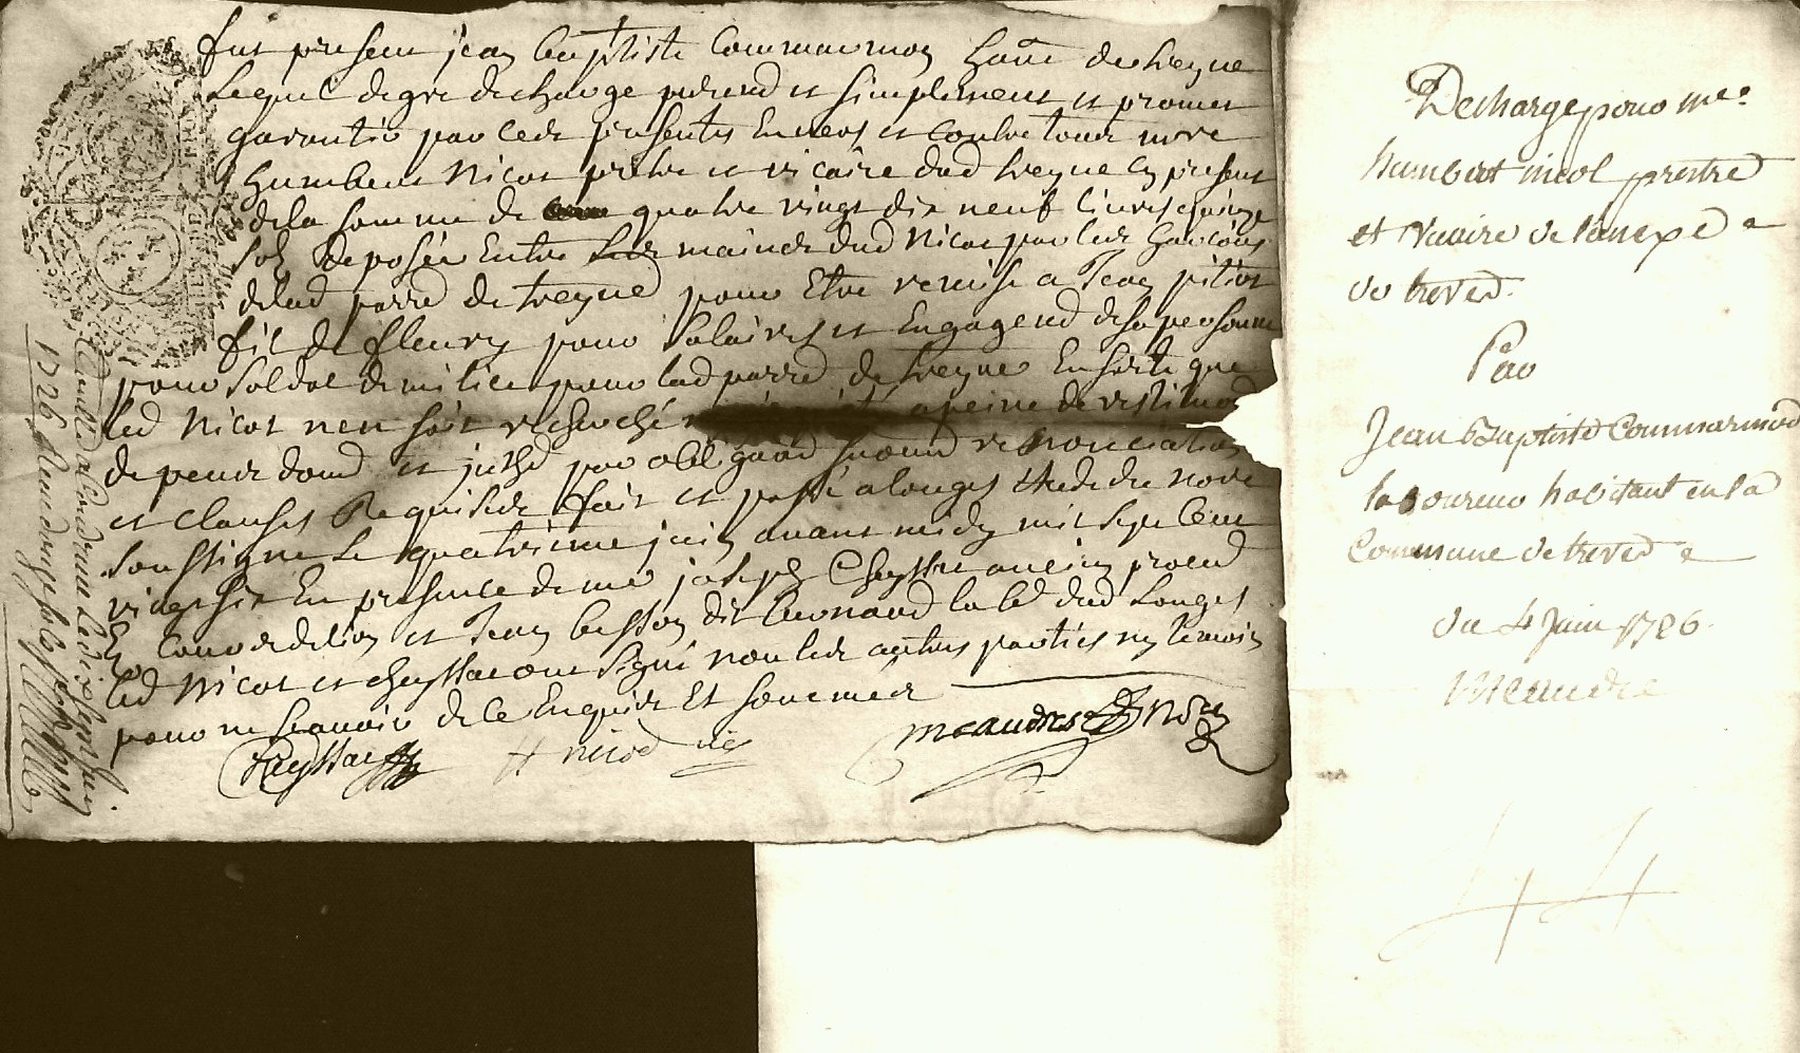 fut present jean baptiste Commarmon habt de treyne
Lequel de gre descharge puremt et simplement et promet
garantir par cesde presentes Envers et contre tous mre
humbert Nicot pretre et vicaire dud treyne cy present
de la somme de quatre vingt dix neuf livres quinze
sols deposée Entre Les mains dud Nicot par les Garcons
delad parre de treyne pour Etre remise a Jean pitiot
fils de fleury pour Salaires et Engagemt de sa personne
pour soldat de milice pour lad parre de treyne En sorte que
led Nicot nen soit recherché a peine de
depens domd et jnthd par obligaon renonciations
et clauses Requises fait et passé a longes Etude du nore
soussigné Le quatrieme juin avant midy mil sept Cent
vingt six En presence de me joseph Cheyssac ancien procd
Es Cours de lion et Jean besson dit bernard dud Longes
Led Nicot et cheyssac ont signé non les autres parties ny temoin
pour ne scavoir de ce Enquis Et sommes
Cheyssac
H nicod vic
meaudre
Controllé a Condrieu Le dix juin
1726 Receu douze sols
Decharge pour mre
humbert nicol prestre
et vicaire de lanexe
de treves
Par
Jean Baptiste Commarmond
laboureur habitant en la
Commune de treves
du 4 Juin 1726
Meaudre